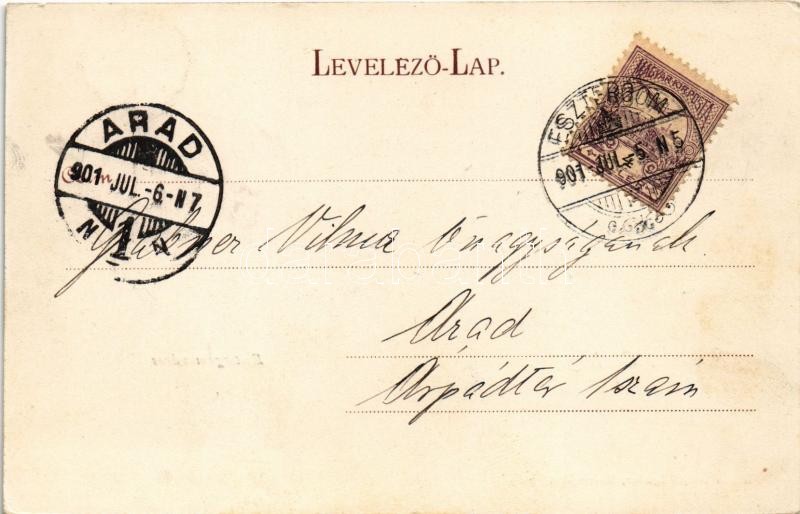 LEVELEZŐ-LAP.
MAGYAR KIR. POSTA
ESZTERGOM
901 JUL. -5. N 5
ARAD
901 JUL. -6. N 7
N 1 N
Vilma Őnagyságának
Arad
Árpádtér 1 szám